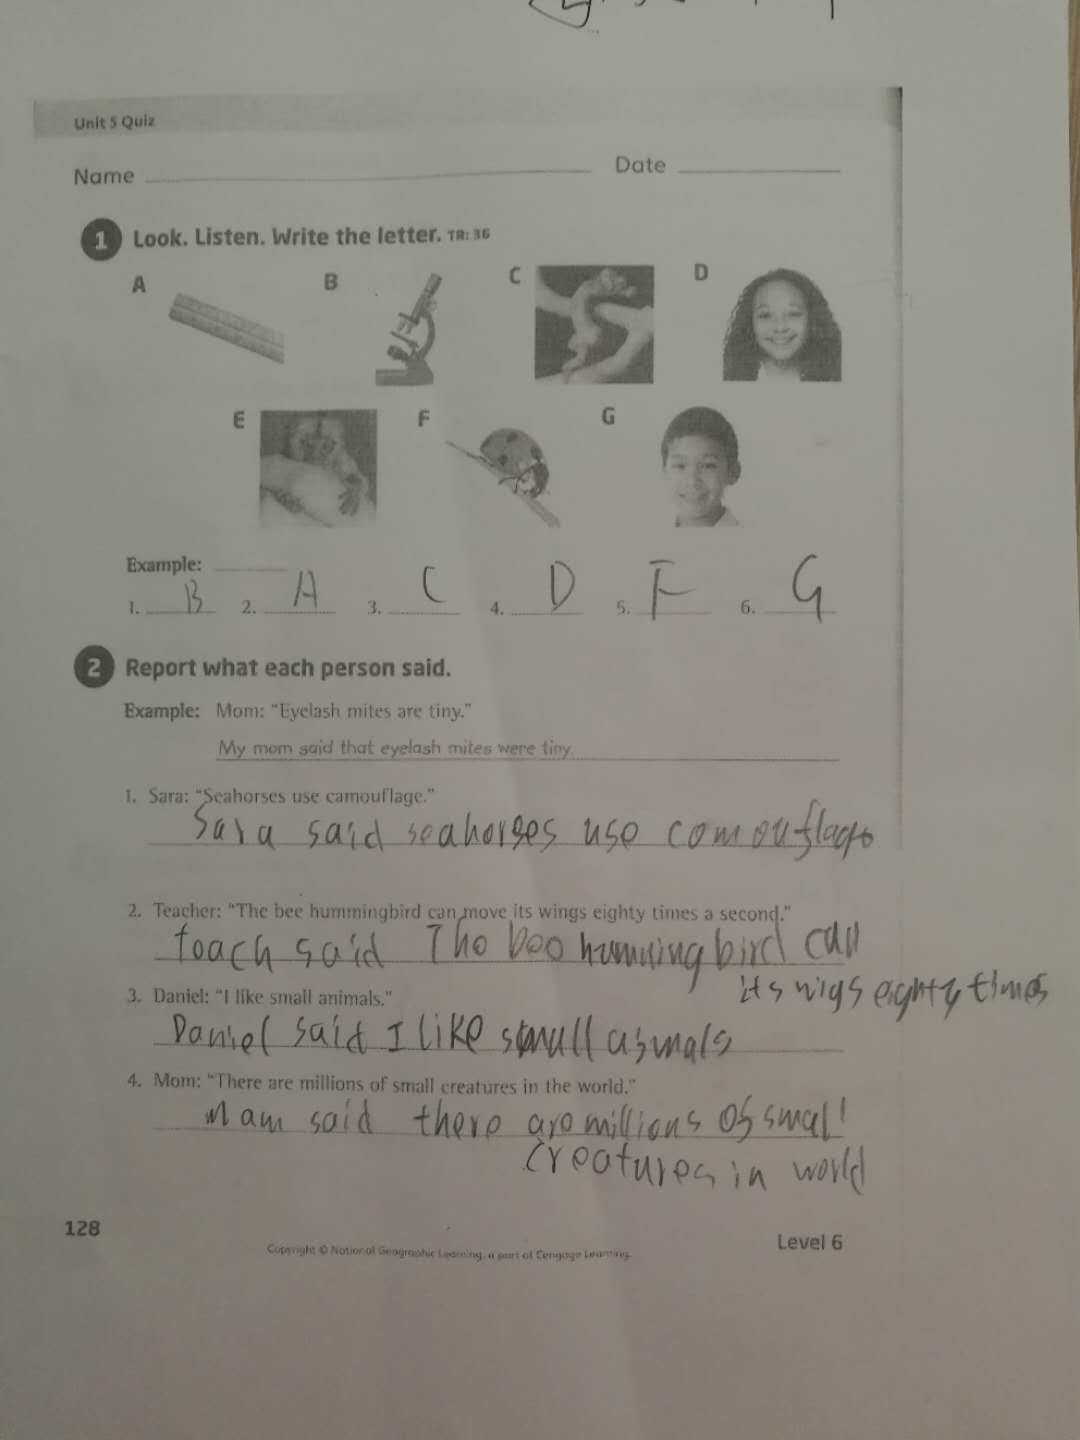 Unit 5 Quiz
Name Date
1 Look. Listen. Write the letter. TR: 36
A B C D
E F G
Example:
1. B 2. A 3. C 4. D 5. F 6. G
2 Report what each person said.
Example: Mom: "Eyelash mites are tiny."
My mom said that eyelash mites were tiny.
1. Sara: "Seahorses use camouflage."
Sara said seahorses use comouflage
2. Teacher: "The bee hummingbird can move its wings eighty times a second."
teach said The bee humming bird can
its wigs eighty times
3. Daniel: "I like small animals."
Daniel said I like small aismals
4. Mom: "There are millions of small creatures in the world."
Mam said there are millions of small
creatures in world
128
Copyright © National Geographic Learning, a part of Cengage Learning.
Level 6